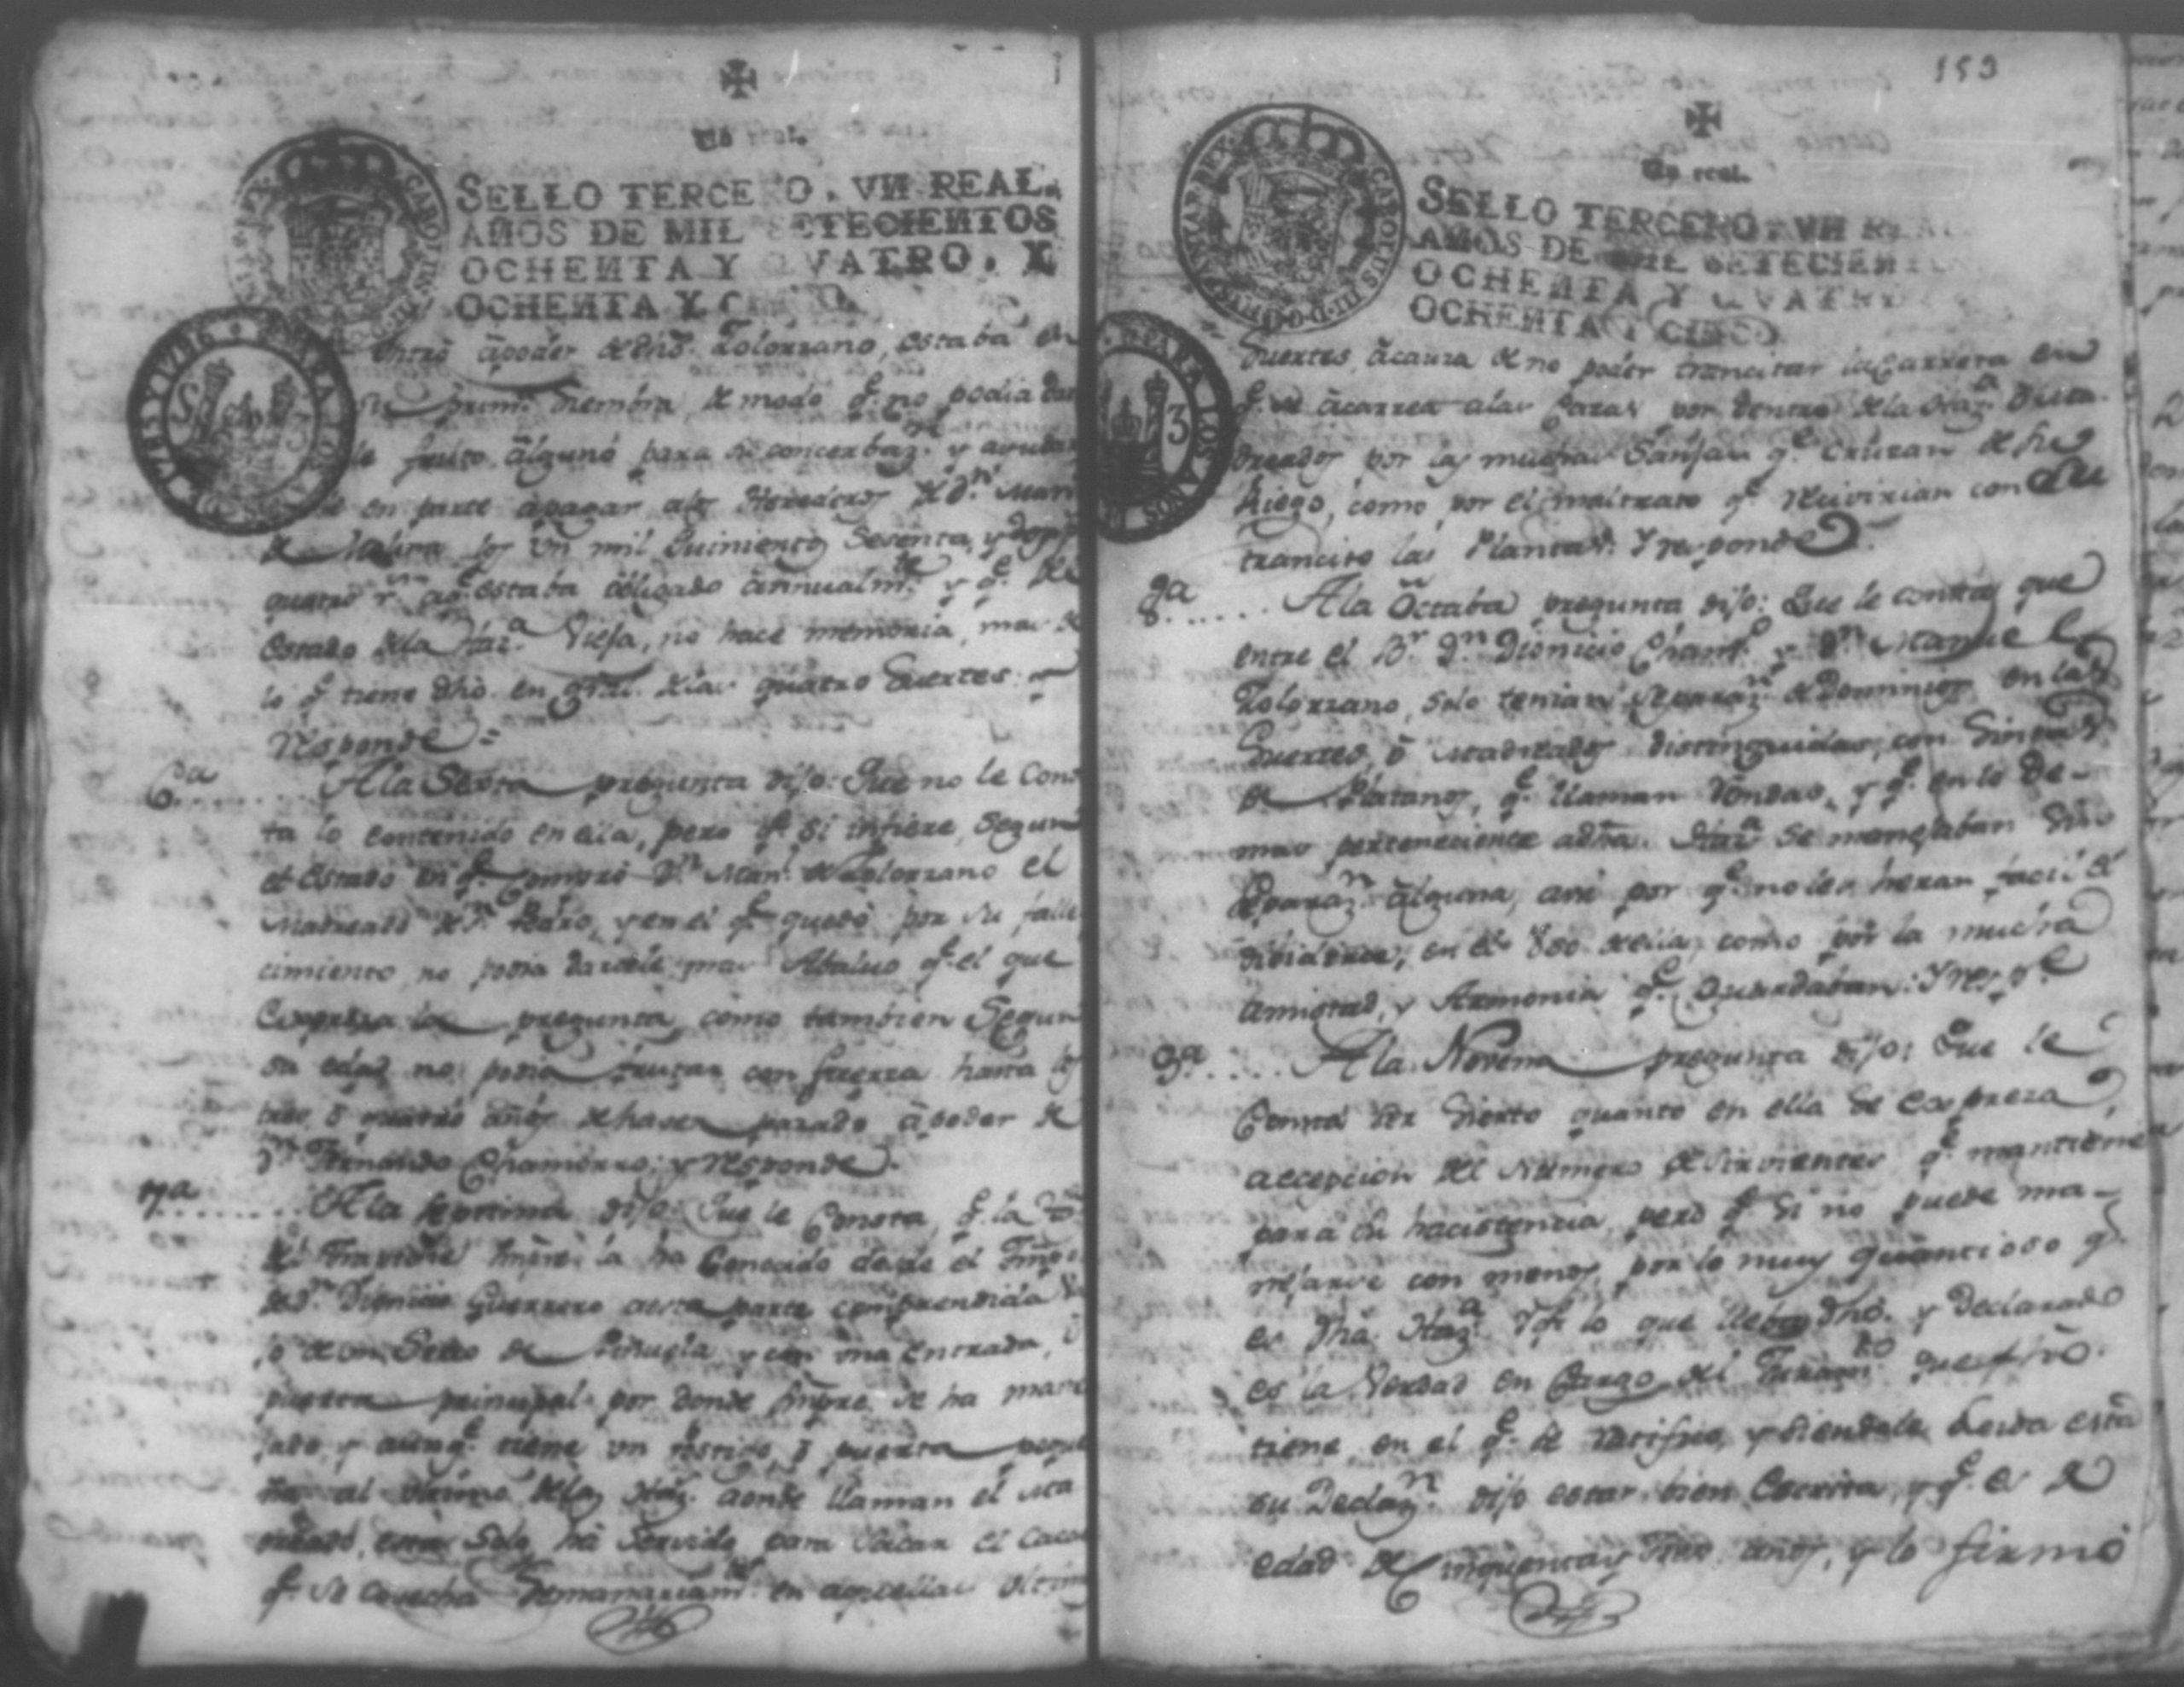 Un real.
SELLO TERCERO, VN REAL,
AÑOS DE MIL SETECIENTOS
OCHENTA Y QVATRO, Y
OCHENTA Y C
entró â poder de dho. Solorzano, estaba en
su prim.ª Siembra, de modo q.e no podia dar
le fruto âlguno para su concerbaz.n y ayudar
le en parte âpagar alos Herederos de D.n Man.l
de Molina los Un mil Quinientos Sesenta, y dos p.s
quatro r.s aq.e estaba obligado ânnualm.te y q.e del
estado dela Haz.da Viefa, no hace memoria, mas de
lo q.e tiene dho. en gral. delas quatro Suertes: y
responde=
6.ª ..... Ala Sexta pregunta dijo: Que no le Cons
ta lo contenido en ella, pero q.e si infiere, Segun
el estado en q.e Compró D.n Man.l de Solorzano el
de D.n Pedro, y en el q.e quedó por su falle
cimiento, no podia darsele mas Abaluo q.e el que
Expresa la pregunta, como tambien Segun
su edad no podia frutar con fuerza hasta los
tres ô quatro años de haver pasado â poder de
D.n Fernando Chamorro: y responde.
7.ª ....... Ala Septima dijo: Que le Consta, q.e la
del siempre la ha Conocido desde el
de D.n Dionicio Guerrero aesta parte comprendida
de un Serco de Piñuela y con una entrada, ô
puerta principal por donde siempre se ha mane
jado, y aunq.e tiene un postigo, ô puerta peque
ña al ultimo delas Haz.s donde llaman el Ma
esta Solo ha Servido para Sacar el Cacao
q.e se Cosecha Semanariam.te en aquellas Ultim
153
Un real.
SELLO TERCERO, VN REAL
AÑOS DE MIL SETECIENTO
OCHENTA Y QVATRO
OCHENTA Y CINCO
PARA LOS AÑOS
Suertes, âcausa de no poder trancitar la Carrera en
q.e se âcarrea alas Casas por dentro dela Haz.da
por las muchas Sanjas q.e Cruzan de su
Riego, como por el maltrato q.e recivirian con este
trancito las Plantas: Y responde.
8.ª ..... Ala Octaba pregunta dijo: Que le consta que
entre el B.r D.n Dionicio Cham.o y D.n Manuel
Solorzano, solo tenian separaz.n de Dominios en las
Suertes, ô distinguidas, con Sintas
de Platanos, q.e llaman Rondas, y q.e en lo de-
mas perteneciente adha. Haz.da se manejaban Sin
Separaz.n âlguna, asi por q.e no les heran facil el
dibidirse, en el Uso de ellas, como por la mucha
amistad, y Armonia q.e Guardaban: Y resp.de
9.ª ..... Ala Novena pregunta dijo: Que le
Consta ser Sierto quanto en ella se Expreza,
accepcion del Numero de Sirvientes q.e mantiene
para su hacistencia, pero q.e Si no puede ma-
nejarse con menos, por lo muy quantioso q.e
es dha. Haz.da Y q.e lo que lleba dho. y Declarado
es la Verdad en Cargo del Juram.to que fho.
tiene, en el q.e se ratificó, y Siendole Leida esta
su Declaz.n dijo estar bien Escrita, y q.e es de
edad de Cinquenta y años, y lo firmó